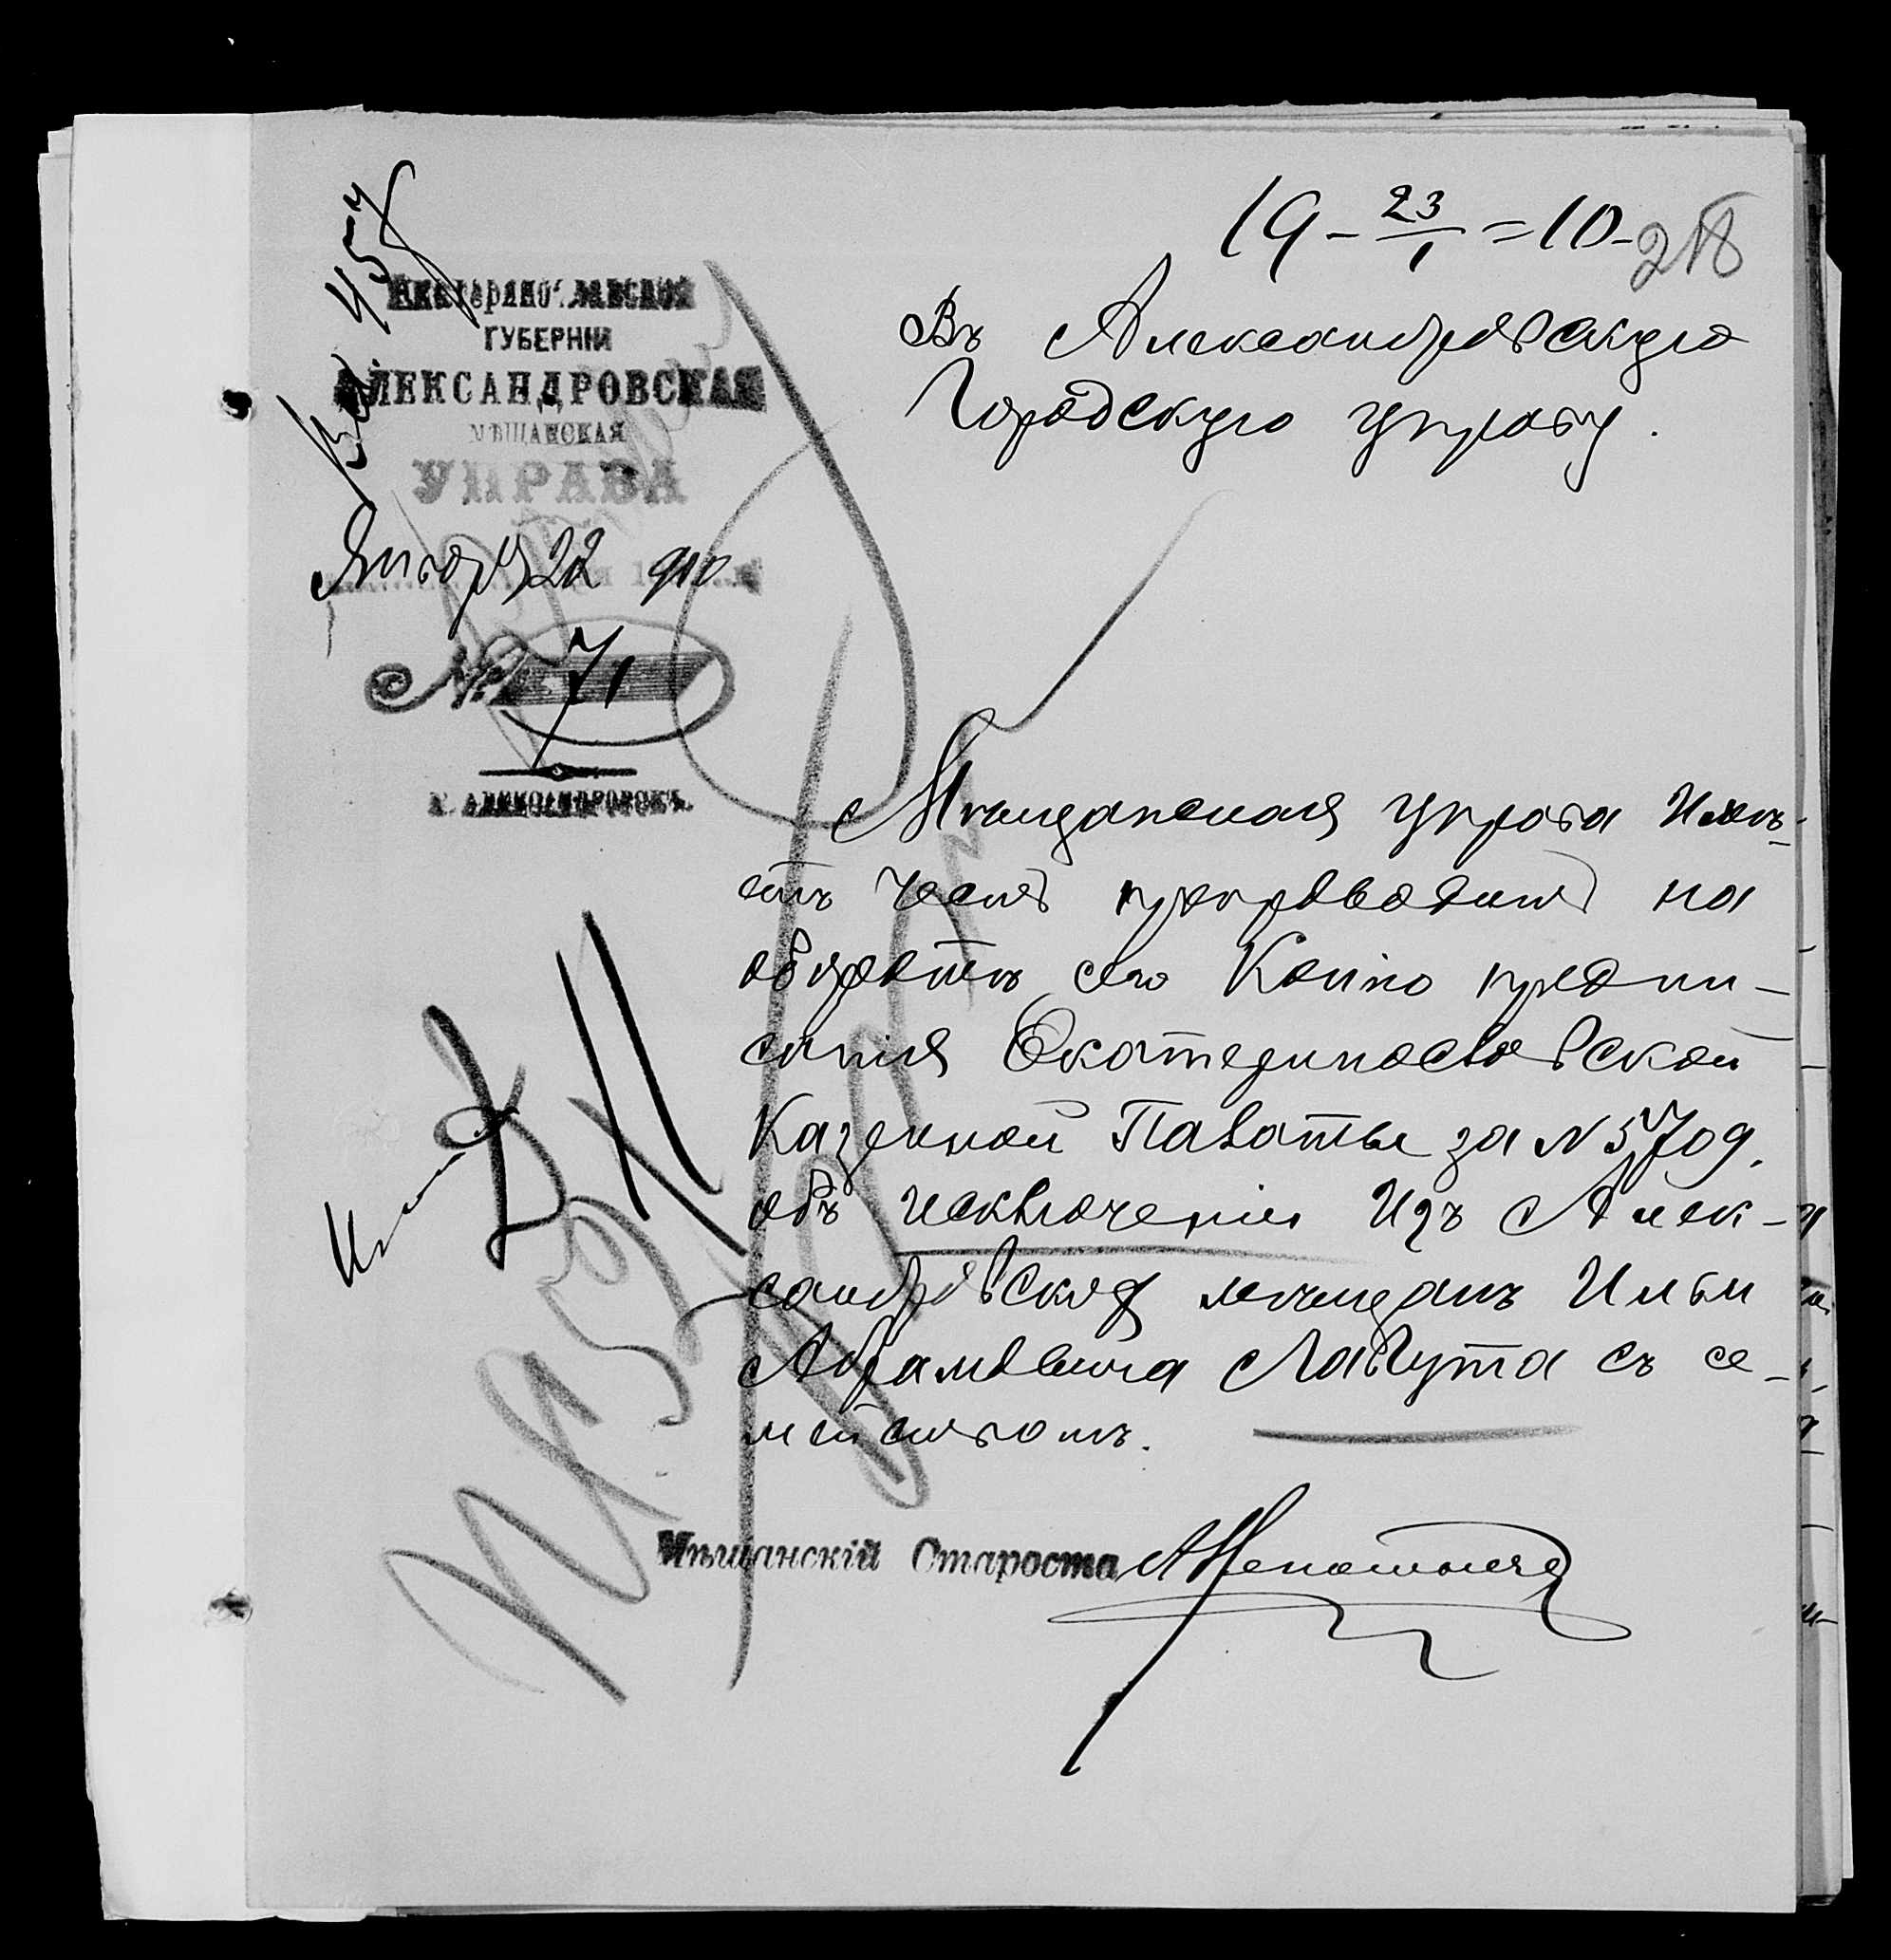 19-23/1=10-
218
Вх 457
Екатеринославской
ГУБЕРНІИ
АЛЕКСАНДРОВСКАЯ
МѢЩАНСКАЯ
УПРАВА
Января 22 910
№ 71
г. АЛЕКСАНДРОВСКЪ.
Въ Александровскую
Городскую управу.
Мѣщанская управа Имѣ-
етъ честь препроводить на
оборотѣ сего Копію предпи-
санія Екатеринославской
Казенной Палаты за N 5709.
объ исключеніи Изъ Алек-
сандровскихъ мѣщанъ Ильи
Абрамовича Лабута съ се-
мействомъ.
Мѣщанскій Староста